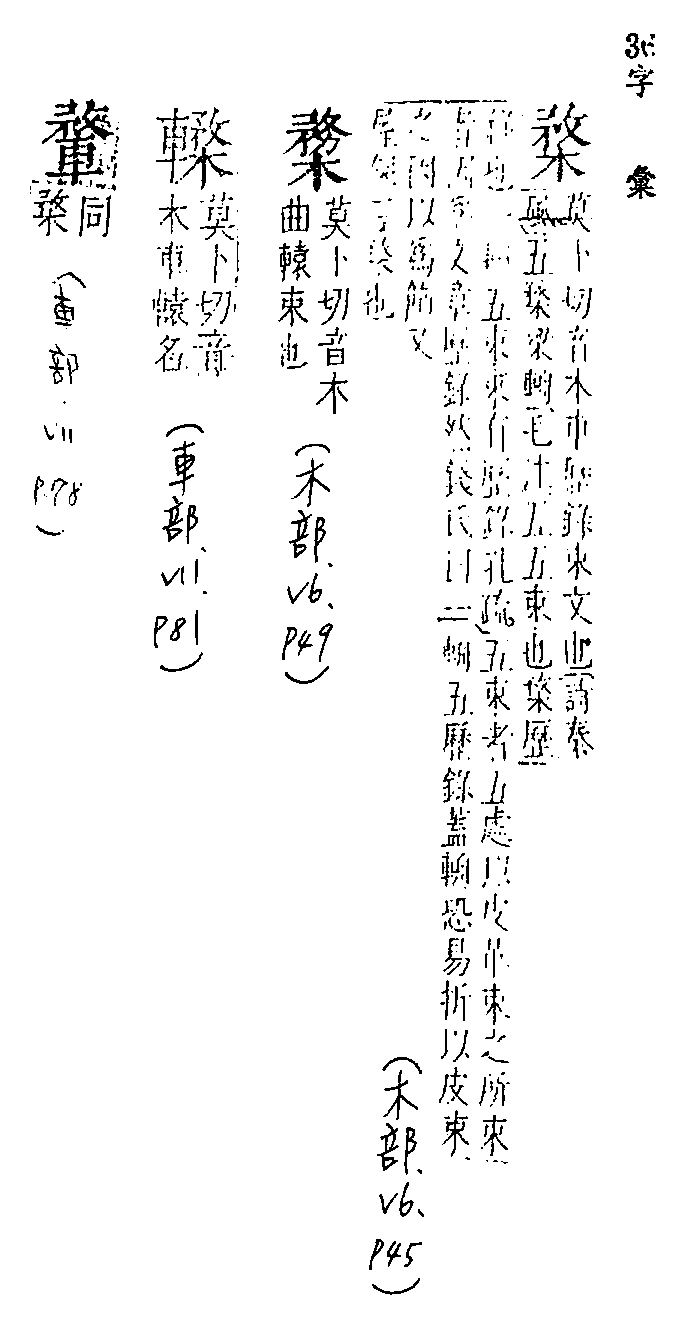 字 彙
楘
莫卜切音木車歷錄束文也詩秦
風五楘梁輈毛注五五束也楘歷
錄也一輈五束束有歷錄孔疏五束者五處以皮革束之所束
文章歷錄然錢氏曰一輈五歷錄蓋輈恐易折以皮束
之因以爲飾又
楘也
(木部、V6、P45)
莫卜切音木
曲轅束也
(木部、V6、P49)
莫卜切音
木車轅名
(車部、V11、P81)
同
楘
(車部.V11 P.78)